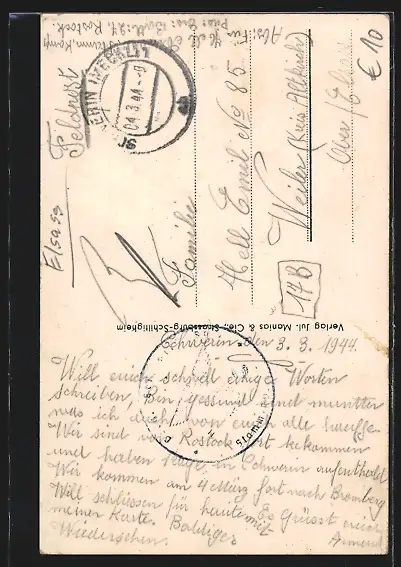 Abs: Fü
Hell
Stamm. Komp.
Rostock.
€ 10
Elsass
Feldpost
SCHWERIN (MECKL)
04.3.44
Familie
Hell Emil No 85
Weiler (Kreis Altkirch)
Ober/Elsass
17B
Verlag Jul. Manias & Cie., Strassburg-Schiltigheim
Schwerin den 3. 3. 1944.
Will euch schnell einige Worten
schreiben, Bin gessund und muntter
was ich auch von euch alle hoffe.
Wir sind von Rostock fort bekommen
und haben Tage in Schwerin aufenthald
Wir kommen am 4 März fort nach Bromberg
Will schliessen für heute mit
meiner Karte. Es Grüsst euch
Baldiges
Wiedersehen. Armand